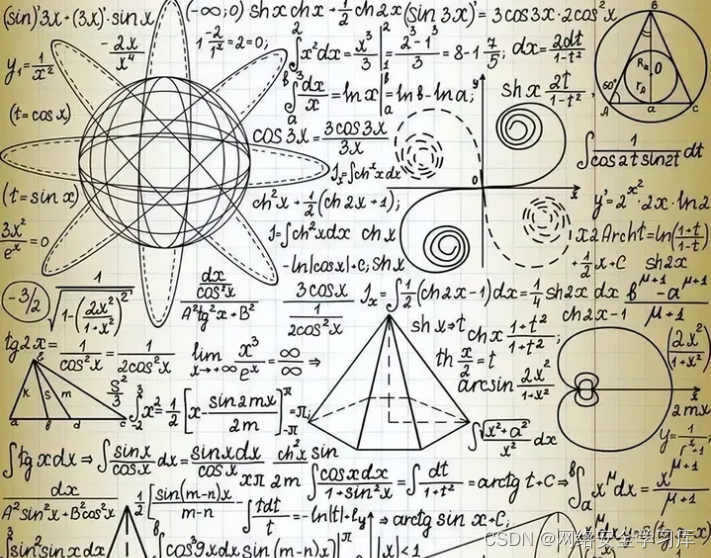 (sin)'3x+(3x)'·sin x
(-∞;0)
sh x ch x + 1/2 ch 2x
(sin 3x)' = 3cos3x·2cos²x
y₁ = 1/x²
-2x/x⁴
1-2/1² = 2=0;
∫₁² x²dx = x³/3 |₁² = 2³-1³/3 = 8-1 7/5;
dx = 2dt/1-t²
∫ₐᵇ dx/x = ln x |ₐᵇ = ln b - ln a;
sh x 2t/1-t²,
(t = cos x)
cos 3x = 3cos3x/3x
60°
A
B
C
a
O
y
x
0
∫ 1/cos2t sin2t dt
Iₓ = ∫ch²x dx
(t = sin x)
ch²x + 1/2(ch 2x + 1);
y' = 2^x²·2x·ln2
3x²/eˣ = 0
I = ∫ch²x dx
ch x
x2 Arch t = ln(1+t/1-t)
-ln|cos x|+c; sh x
+ 1/2 x + C
sh2x
-3/2
1/√1-(2x²/1+x²)²
dx/cos²x
A²tg²x+B²
3cos x
1/2cos²x
Iₓ = ∫1/2(ch2x-1)dx = 1/4 sh2x dx
b^μ+1 - a^μ+1/μ+1
ch2x-1
tg2x = 1/cos²x = 1/2cos²x
lim x→+∞ x³/eˣ = ∞/∞ ⇒
sh x=t
ch x 1+t²/1+t²;
th x/2 = t
(2x²/1+x²)
arcsin 2x²/1+x²
k
s
m
a
b
d
c
S²/3
∫x² = 1/2 [x - sin2mx/2m] π -π
= -π;
∫ √x²+a²/x² dx
2mx
∫tg x dx ⇒ ∫ sin x/cos x dx = sin x dx/cos x
ch²x sin
xπ 2m
∫ cos x dx/1+sin²x = ∫ dt/1+t² = arctg t + C ⇒
∫ₐᵇ x^μ dx = x^μ+1/μ+1
dx/A²sin²x+B²cos²x
1/2 [sin(m-n)x/m-n
∫ tdt/t
= -ln|t|+
⇒ arctg sin x + C;
∫sin²sin x dx
∫cos9x dx sin(m-n)x]
|x|<1
CSDN @网络安全学习库